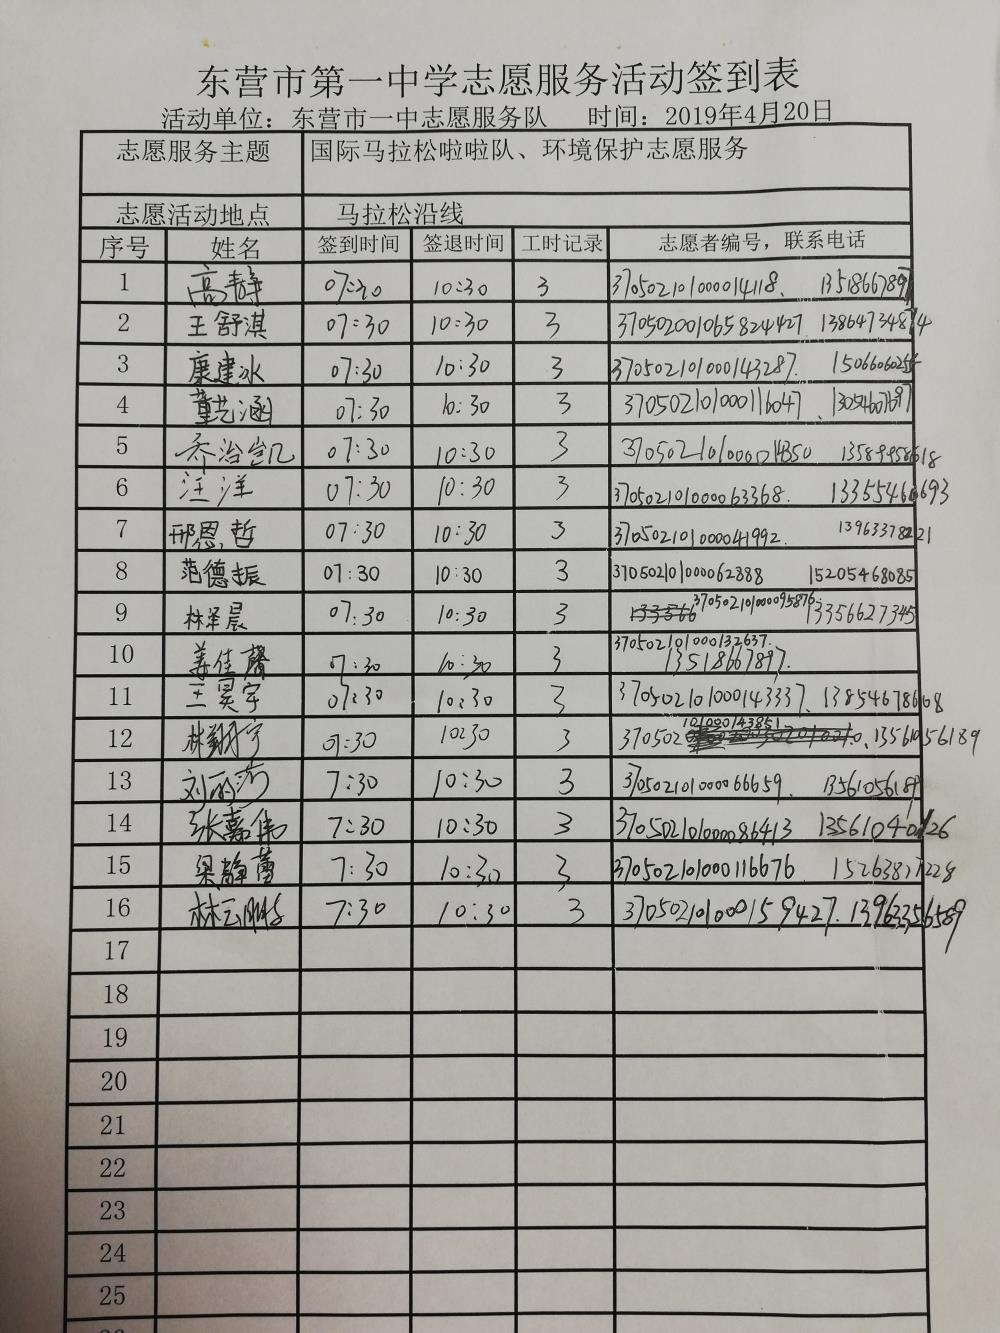 东营市第一中学志愿服务活动签到表
活动单位：东营市一中志愿服务队 时间：2019年4月20日
志愿服务主题 国际马拉松啦啦队、环境保护志愿服务
志愿活动地点 马拉松沿线
序号 姓名 签到时间 签退时间 工时记录 志愿者编号，联系电话
1 高静 07:30 10:30 3 370502101000014118、 13518667897
2 王舒淇 07:30 10:30 3 370502001065824427 13864734874
3 康建冰 07:30 10:30 3 370502101000143287.
4 董艺涵 07:30 10:30 3 370502101000116047 、
5 乔治凯 07:30 10:30 3
6 汪洋 07:30 10:30 3 370502101000063368.
7 邢恩哲 07:30 10:30 3 370502101000041992.
8 范德振 07:30 10:30 3 370502101000062888 15205468085
9 林泽晨 07:30 10:30 3 370502101000095876 13356627345
10 姜佳馨 07:30 10:30 3 370502101000132637.
13518667897.
11 王昊宇 07:30 10:30 3 370502101000143337、
12 林翔宇 07:30 10:30 3 370502 101000143851 、13561056189
13 刘丽莎 7:30 10:30 3 370502101000066659. 13561056189
14 张嘉伟 7:30 10:30 3 370502101000086413
15 梁静蕾 7:30 10:30 3 370502101000116676 15263827228
16 7:30 10:30 3 370502101000159427. 13963356589
17
18
19
20
21
22
23
24
25